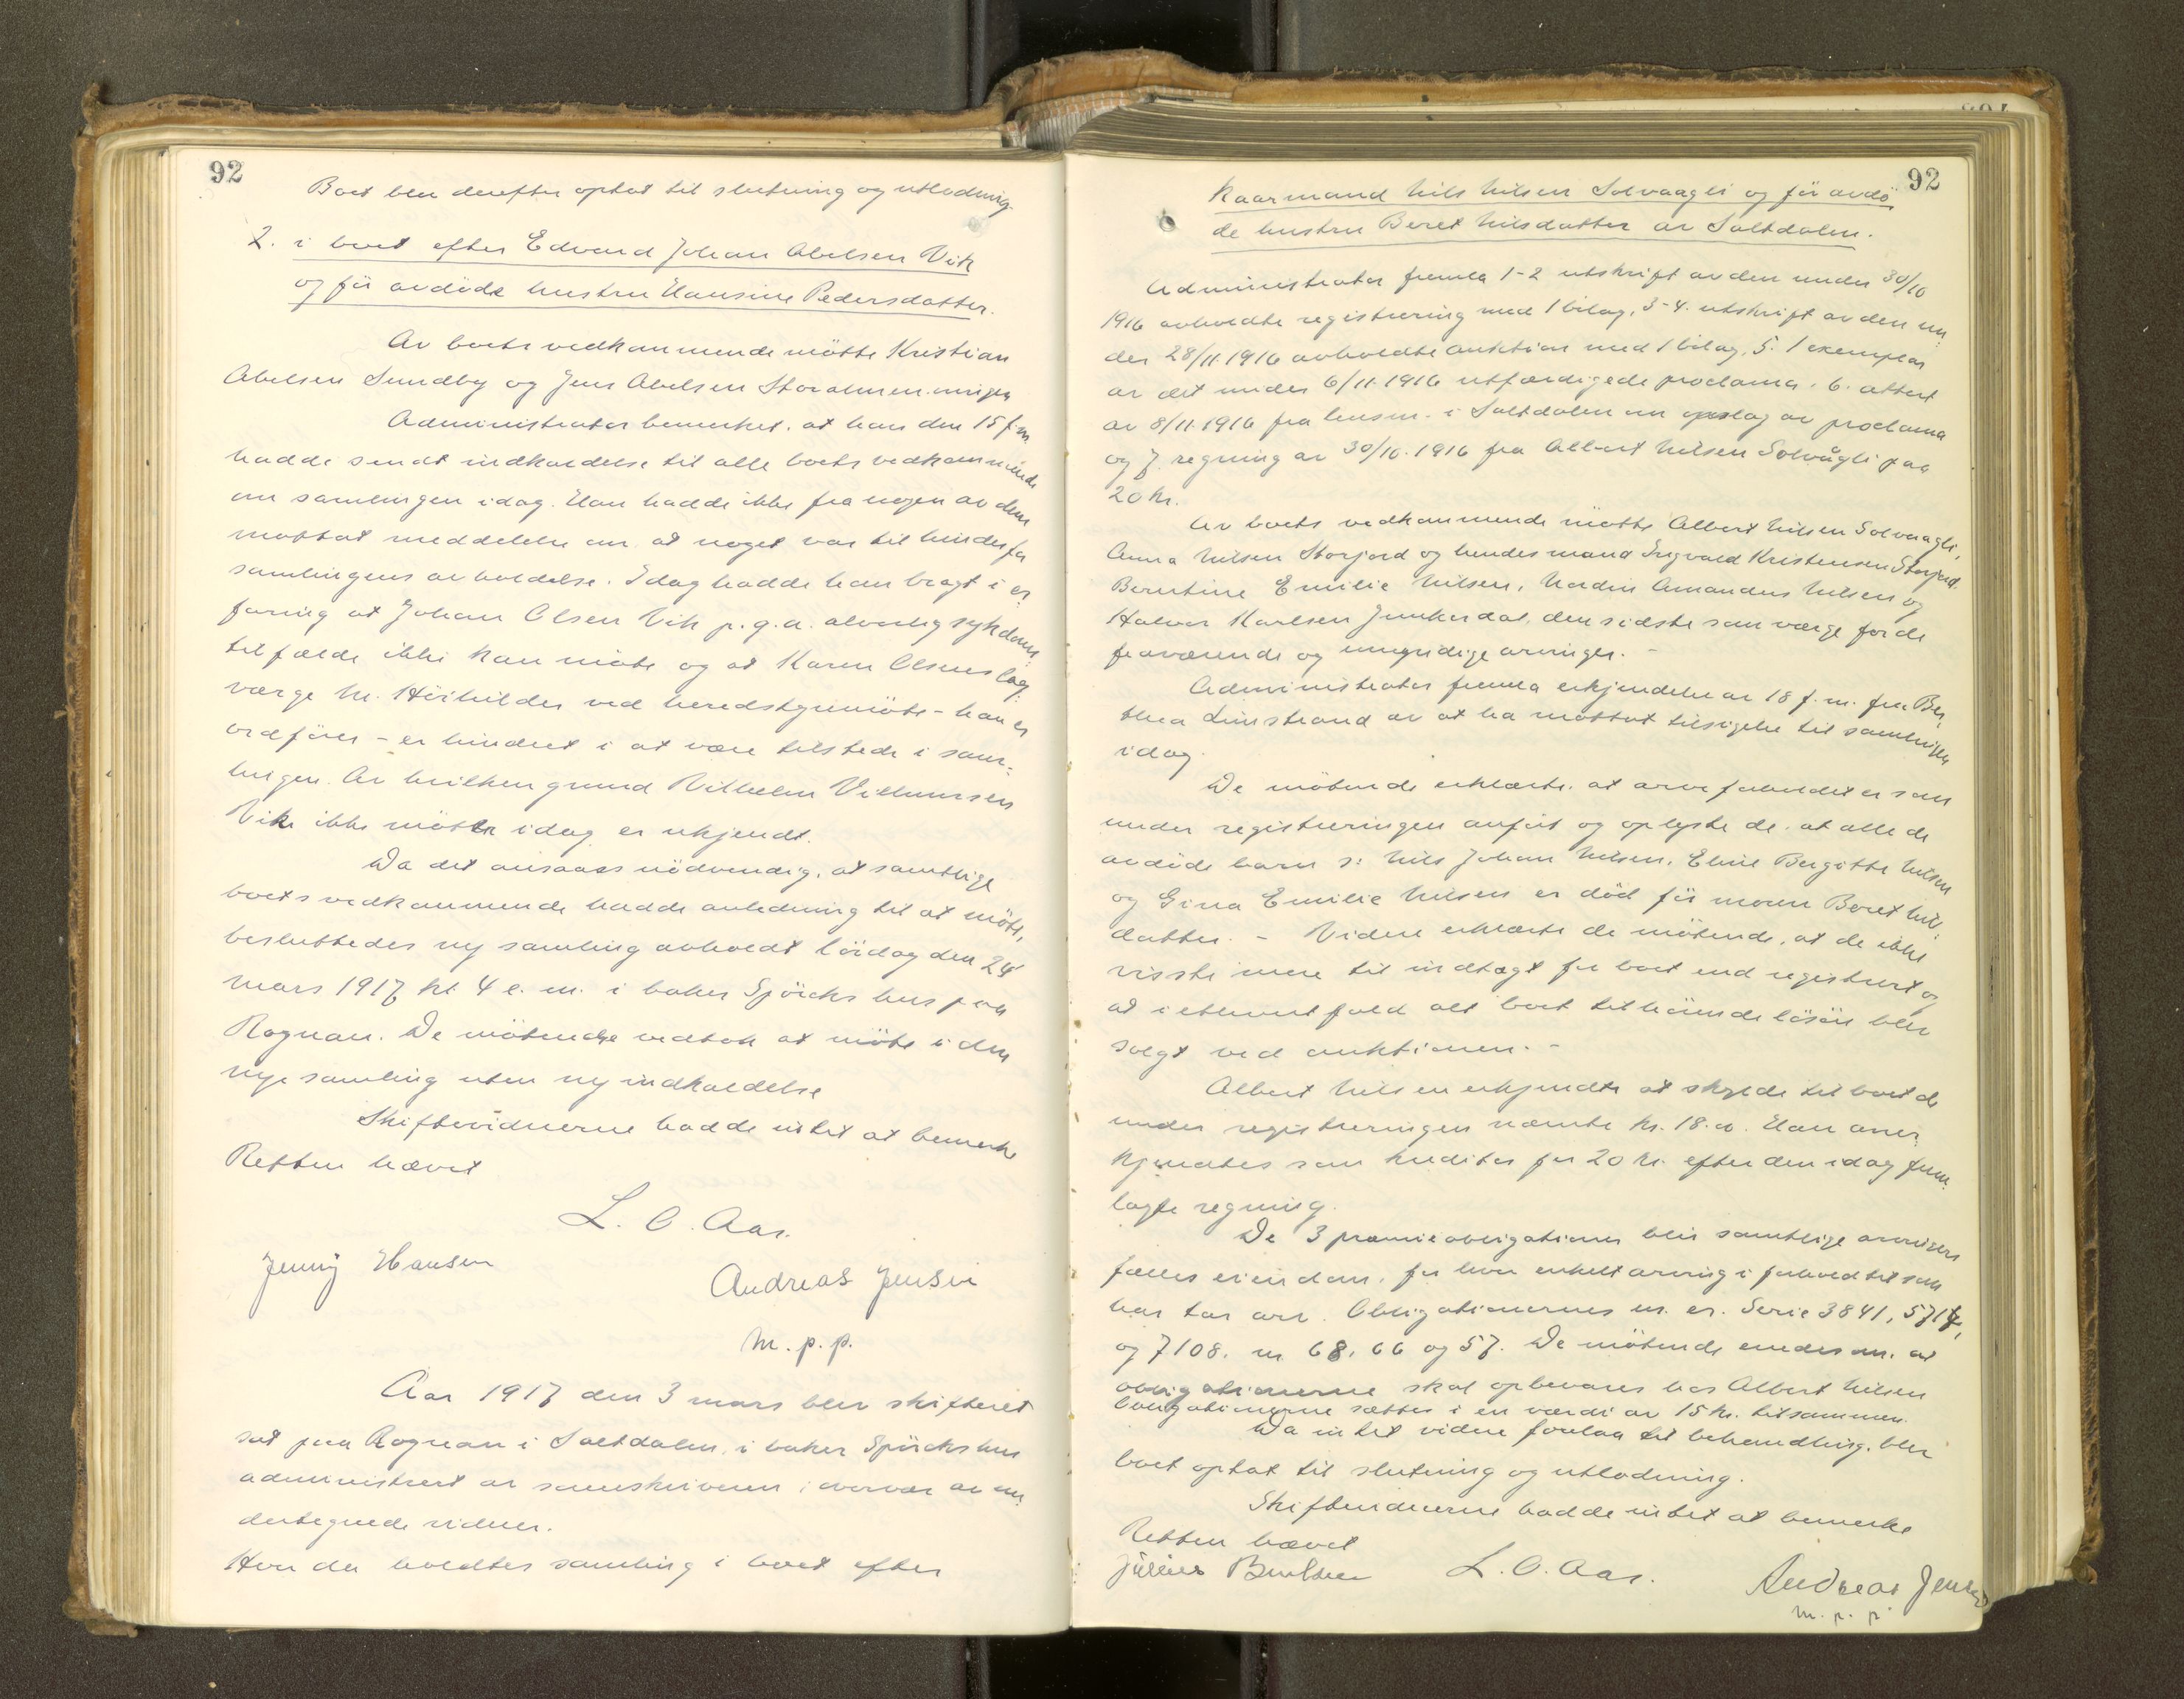 92
Boet blev derefter optat til slutning og utlodning.
2. i boet efter Edvard Johan Abelsen Vik
og før avdøde hustru Hansine Pedersdatter.
Av boets vedkommende møtte Kristian
Abelsen Sundby og Jens Abelsen Storalmenningen
Administrator bemerket, at han den 15 f.m.
hadde sendt indkaldelse til alle boets vedkommende
om samlingen idag. Han hadde ikke fra nogen av dem
mottat meddelelse om, at noget var til hinder for
samlingens avholdelse. Idag hadde han bragt i er-
faring at Johan Olsen Vik p.g.a. alvorlig sykdoms-
tilfælde ikke kan møte og at Karen Olsens lag-
værge N. Høihilder ved heredstyremøte - han er
ordfører - er hindret i at være tilstede i sam-
lingen. Av hvilken grund Vilhelm Villumsen
Vik ikke møtte idag er ukjendt.
Da det ansaaes nødvendig, at samtlige
boets vedkommende hadde anledning til at møte,
besluttedes ny samling avholdt lørdag den 24
mars 1917 kl. 4 e.m. i baker Spörcks hus paa
Rognan. De møtende vedtok at møte i den
nye samling uten ny indkaldelse
Skiftevidnerne hadde intet at bemerke
Retten hævet
L. O. Aas.
Jenny Hansen
Andreas Jensen
m.p.p.
Aar 1917 den 3 mars blev skifteret
sat paa Rognan i Saltdalen, i baker Spörcks hus
administrert av sorenskriveren i overvær av un-
dertegnede vidner.
Hvor da holdtes samling i boet efter
92
Kaarmand Nils Nilsen Solvaagli og før avdø-
de hustru Beret Nilsdatter av Saltdalen.
Administrator fremla 1-2 utskrift av den under 30/10
1916 avholdte registrering med 1 bilag, 3-4. utskrift av den un-
der 28/11. 1916 avholdte auktion med 1 bilag, 5. 1 exemplar
av det under 6/11. 1916 utfærdigede proclama. 6. attest
av 8/11. 1916 fra lensm. i Saltdalen om opslag av proclama
og 7. regning av 30/10. 1916 fra Albert Nilsen Solvågli paa
20 kr.
Av boets vedkommende møtte Albert Nilsen Solvaagli,
Anna Nilsen Storjord og hendes mand Sigvald Kristensen Storjord.
Berntine Emilie Nilsen, Nordin Amandus Nilsen og
Halvor Karlsen Junkerdal, den sidste som værge for de
fraværende og umyndige arvinger. -
Administrator fremla erkjendelse av 18 f.m. fra Ber-
thea Limstrand av at ha mottat tilsigelse til samlingen
idag.
De møtende erklærte, at arveforholdet er som
under registreringen anført og oplyste de, at alle de
avdøde barn s: Nils Johan Nilsen, Eline Bergitte Nilsen
og Gina Emilie Nilsen er død før moren Beret Nils-
datter. - Videre erklærte de møtende, at de ikke
visste mere til indtægt for boet end registrert og
at i ethvert fald alt boet tilhørende løsøre blev
solgt ved auktionen. -
Albert Nilsen erkjendte at skylde til boet de
under registreringen nævnte kr. 18.00. Han aner-
kjendtes som kreditor for 20 kr. efter den idag frem-
lagte regning.
De 3 præmieobligationer blir samtlige arvingers
fælles eiendom, for hver enkelt arving i forhold til som
han tar arv. Obligationernes nr. er. Serie 3841, 5717,
og 7108. nr. 68. 66 og 57. De møtende enedes om, at
obligationerne skal opbevares hos Albert Nilsen
Obligationerne sættes i en værdi av 15 kr. tilsammen.
Da intet videre forelaa til behandling, blev
boet optat til slutning og utlodning.
Skiftevidnerne hadde intet at bemerke
Retten hævet
L. O. Aas.
Andreas Jensen
m.p.p.